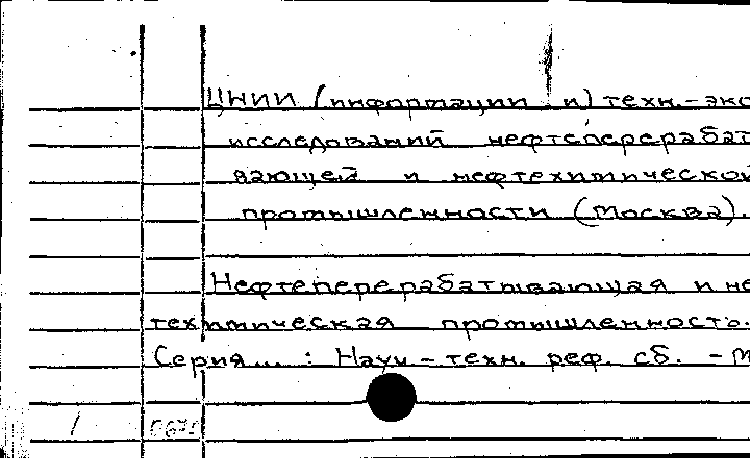 ЦНИИ (информации и) техн.-эко
исследований нефтеперерабат
вающей и нефтехимической
промышленности (Москва).
Нефтеперерабатывающая и не
техническая промышленность.
Серия... : Научн-техн. реф. сб. - М
/